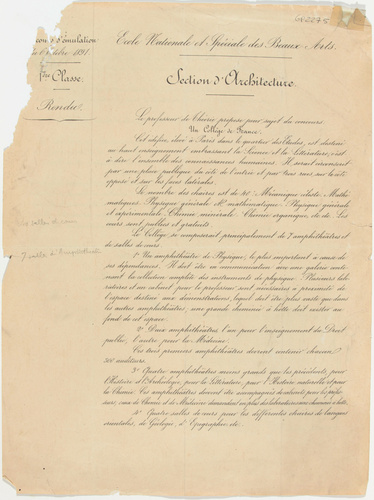 d'émulation
1891.
1ère Classe
Rendu
École Nationale et Spéciale des Beaux-Arts.
Section d'Architecture.
Le professeur de Théorie propose pour sujet du concours
Un Collège de France.
Cet édifice, élevé à Paris dans le quartier des Études, est destiné
au haut enseignement embrassant la Science et la Littérature, c'est
à dire l'ensemble des connaissances humaines. Il serait
par une place publique du côté de l'entrée et par trois rues, sur le côté
opposé et sur les faces latérales.
Le nombre des chaires est de 40: Mécanique céleste, Mathé-
matiques, Physique générale et mathématique, Physique générale
et expérimentale, Chimie minérale, Chimie organique, etc. etc. Les
cours sont publics et gratuits.
Le Collège se composerait principalement de 7 amphithéâtres et
de salles de cours.
1° Un amphithéâtre de Physique; le plus important à cause de
ses dépendances. Il doit être en communication avec une galerie conte-
nant la collection complète des instruments de physique. Plusieurs labo-
ratoires et un cabinet pour le professeur sont nécessaires à proximité de
l'espace destiné aux démonstrations, lequel doit être plus vaste que dans
les autres amphithéâtres; une grande cheminée à hotte doit exister au
fond de cet espace.
2° Deux amphithéâtres, l'un pour l'enseignement du Droit
public, l'autre pour la Médecine.
Ces trois premiers amphithéâtres devront contenir chacun
500 auditeurs.
3° Quatre amphithéâtres moins grands que les précédents, pour
l'Histoire et l'Archéologie, pour la Littérature, pour l'Histoire naturelle et pour
la Chimie. Ces amphithéâtres devront être accompagnés de cabinets pour les profes-
seurs, ceux de Chimie et de Médecine demandant en plus des laboratoires avec cheminée à hotte.
4° Quatre salles de cours pour les différentes chaires de langues
orientales, de Géologie, d'Épigraphie, etc.